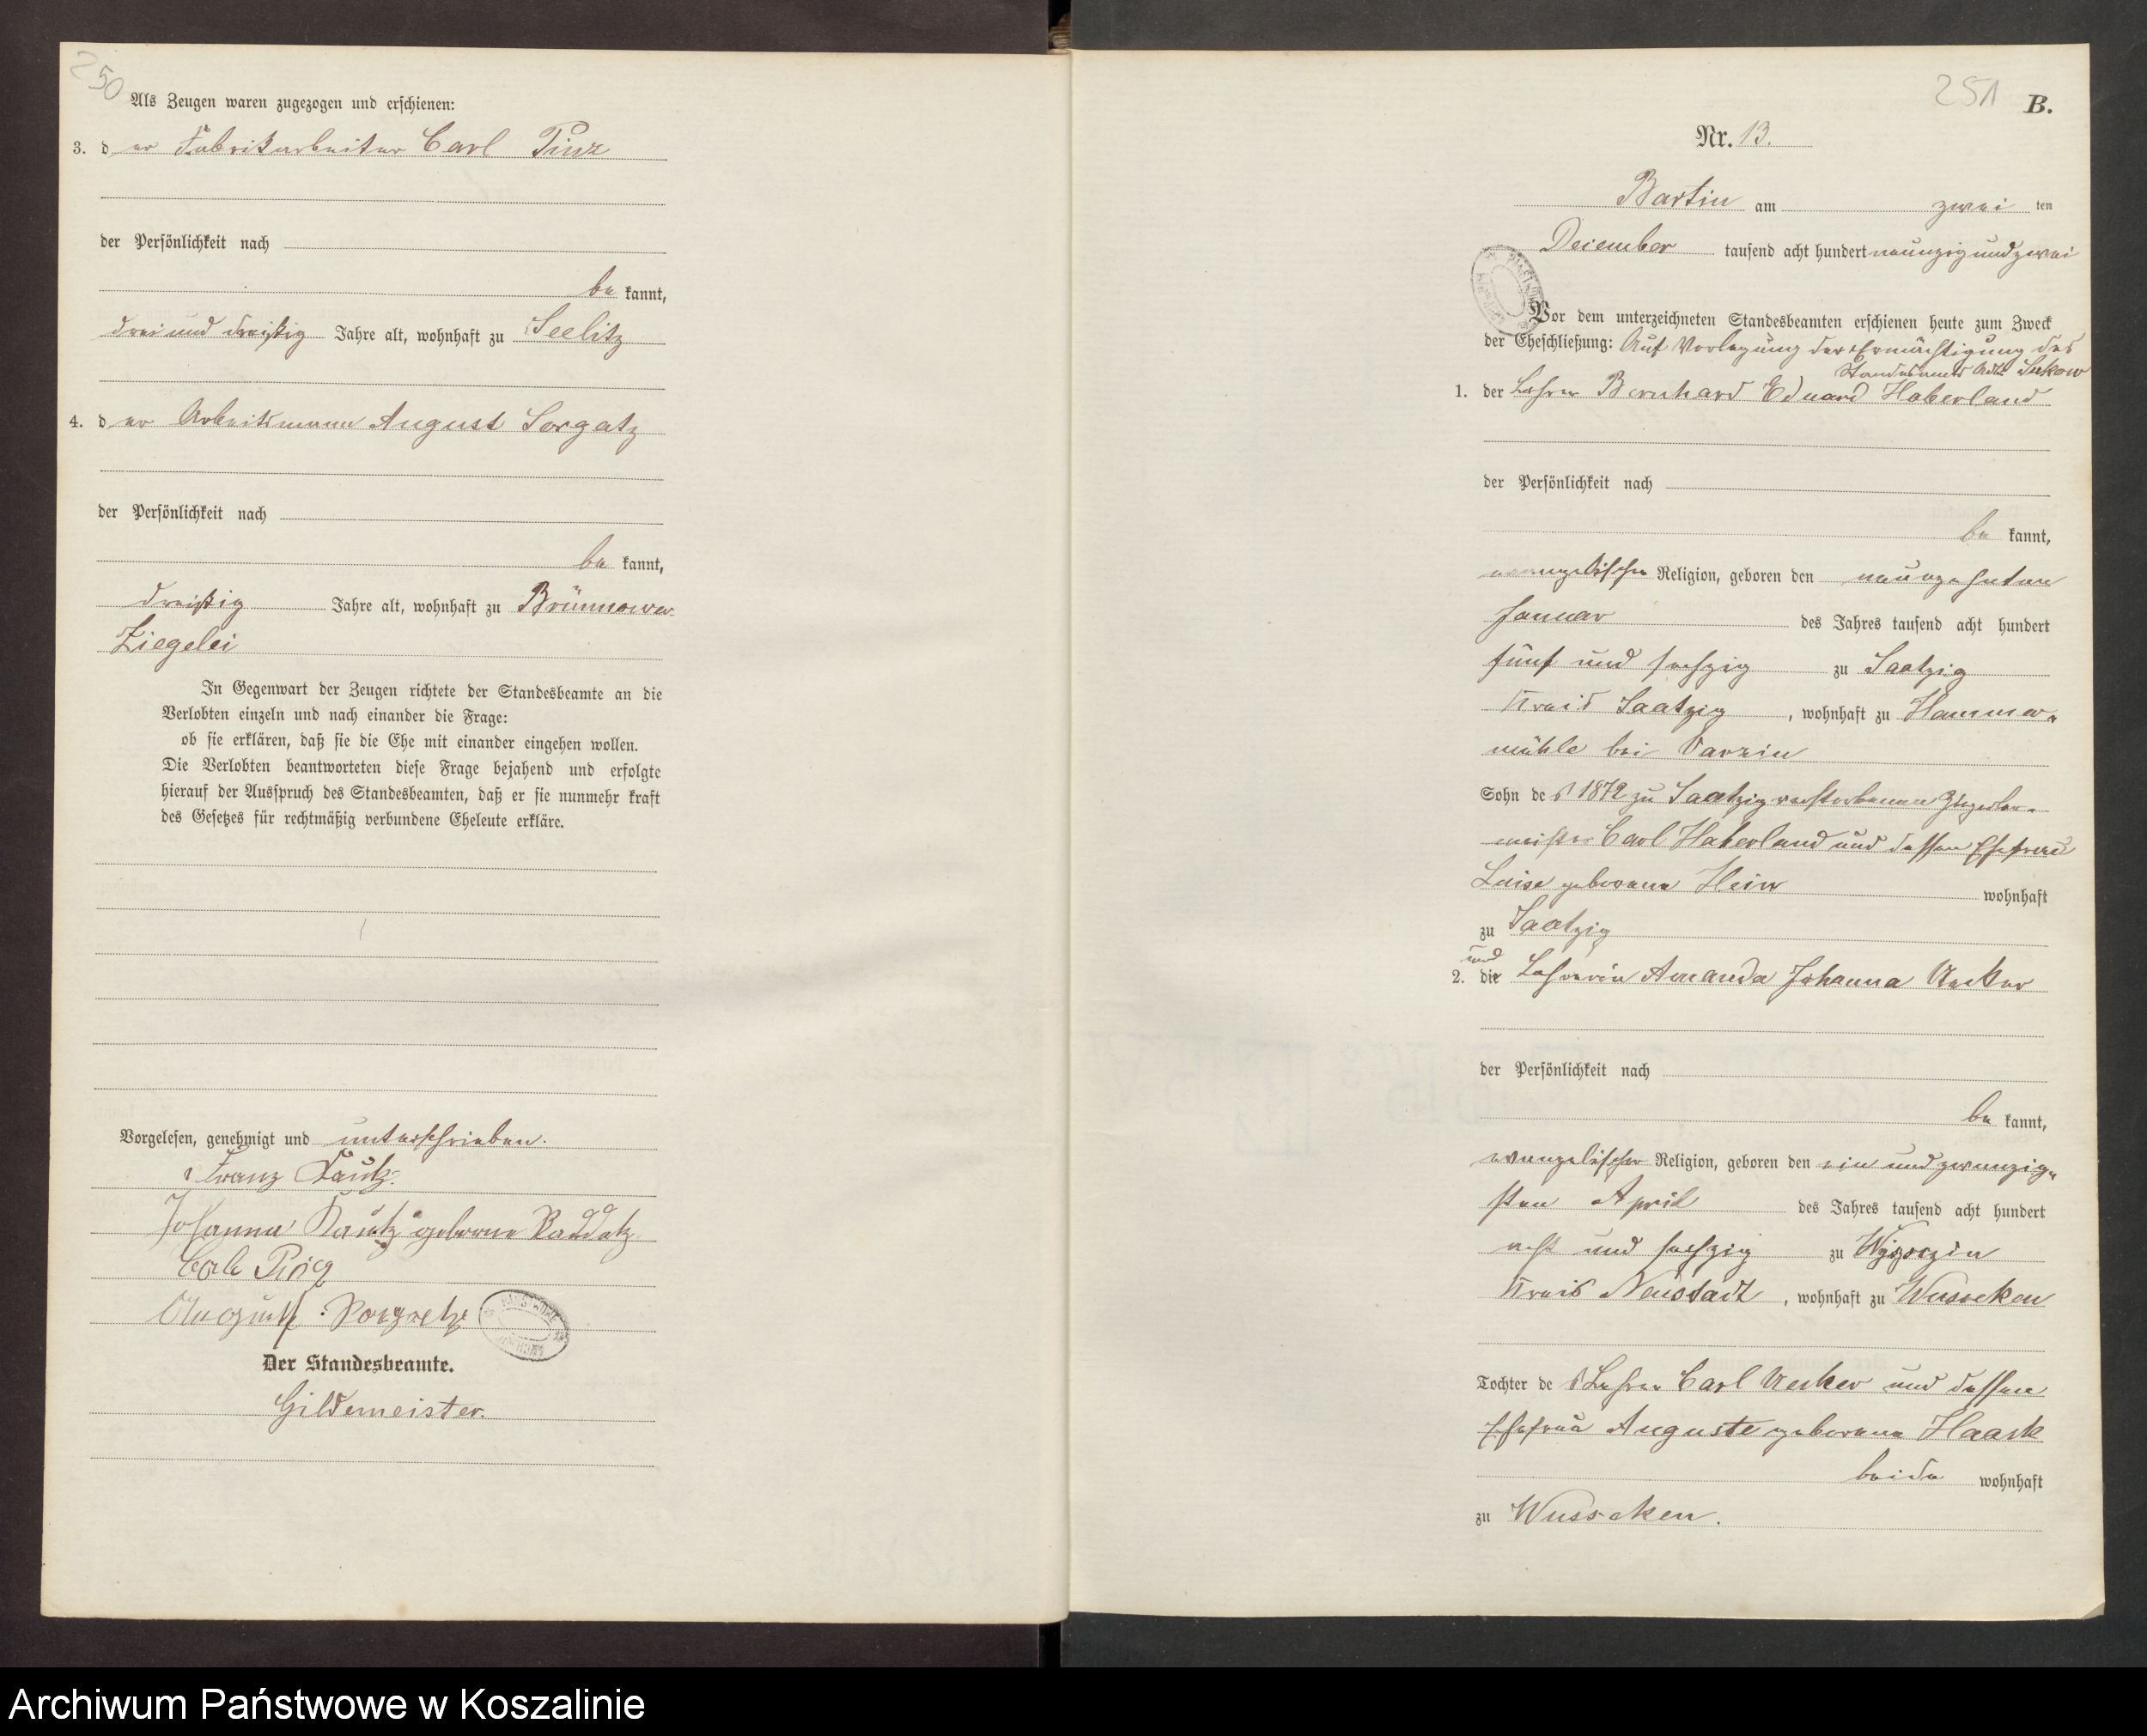 250
Als Zeugen waren zugezogen und erschienen:
3. der Fabrikarbeiter Carl Pinz
der Persönlichkeit nach
be kannt,
drei und dreißig Jahre alt, wohnhaft zu Seelitz
4. der Arbeitsmann August Sorgatz
der Persönlichkeit nach
be kannt,
dreißig Jahre alt, wohnhaft zu Brünnower
Ziegelei
In Gegenwart der Zeugen richtete der Standesbeamte an die
Verlobten einzeln und nach einander die Frage:
ob sie erklären, daß sie die Ehe mit einander eingehen wollen.
Die Verlobten beantworteten diese Frage bejahend und erfolgte
hierauf der Ausspruch des Standesbeamten, daß er sie nunmehr kraft
des Gesetzes für rechtmäßig verbundene Eheleute erkläre.
Vorgelesen, genehmigt und unterschrieben.
Franz Kautz
Johanna Kautz geborene Raddatz
August Sorgatz
Der Standesbeamte.
Gildemeister.
251
B.
Nr. 13.
Bartin am zwei ten
December tausend acht hundert neunzig und zwei
Vor dem unterzeichneten Standesbeamten erschienen heute zum Zweck
der Eheschließung: Auf Vorlegung der Ermächtigung des
Standesamts Adl. Sukow
1. der Lehrer Bernhard Eduard Haberland
der Persönlichkeit nach
be kannt,
evangelischer Religion, geboren den neunzehnten
Januar des Jahres tausend acht hundert
fünf und sechzig zu Saatzig
Kreis Saatzig, wohnhaft zu Hammer-
mühle bei Varzin
Sohn des 1872 zu Saatzig verstorbenen Ziegler-
meister Carl Haberland und dessen Ehefrau
Luise geborene Hein wohnhaft
zu Saatzig
und
2. die Lehrerin Amanda Johanna Uecker
der Persönlichkeit nach
be kannt,
evangelischer Religion, geboren den ein und zwanzig-
sten April des Jahres tausend acht hundert
acht und sechzig zu
Kreis Neustadt, wohnhaft zu Wusseken
Tochter des Lehrer Carl Uecker und dessen
Ehefrau Auguste geborene Haack
beide wohnhaft
zu Wusseken.
Archiwum Państwowe w Koszalinie